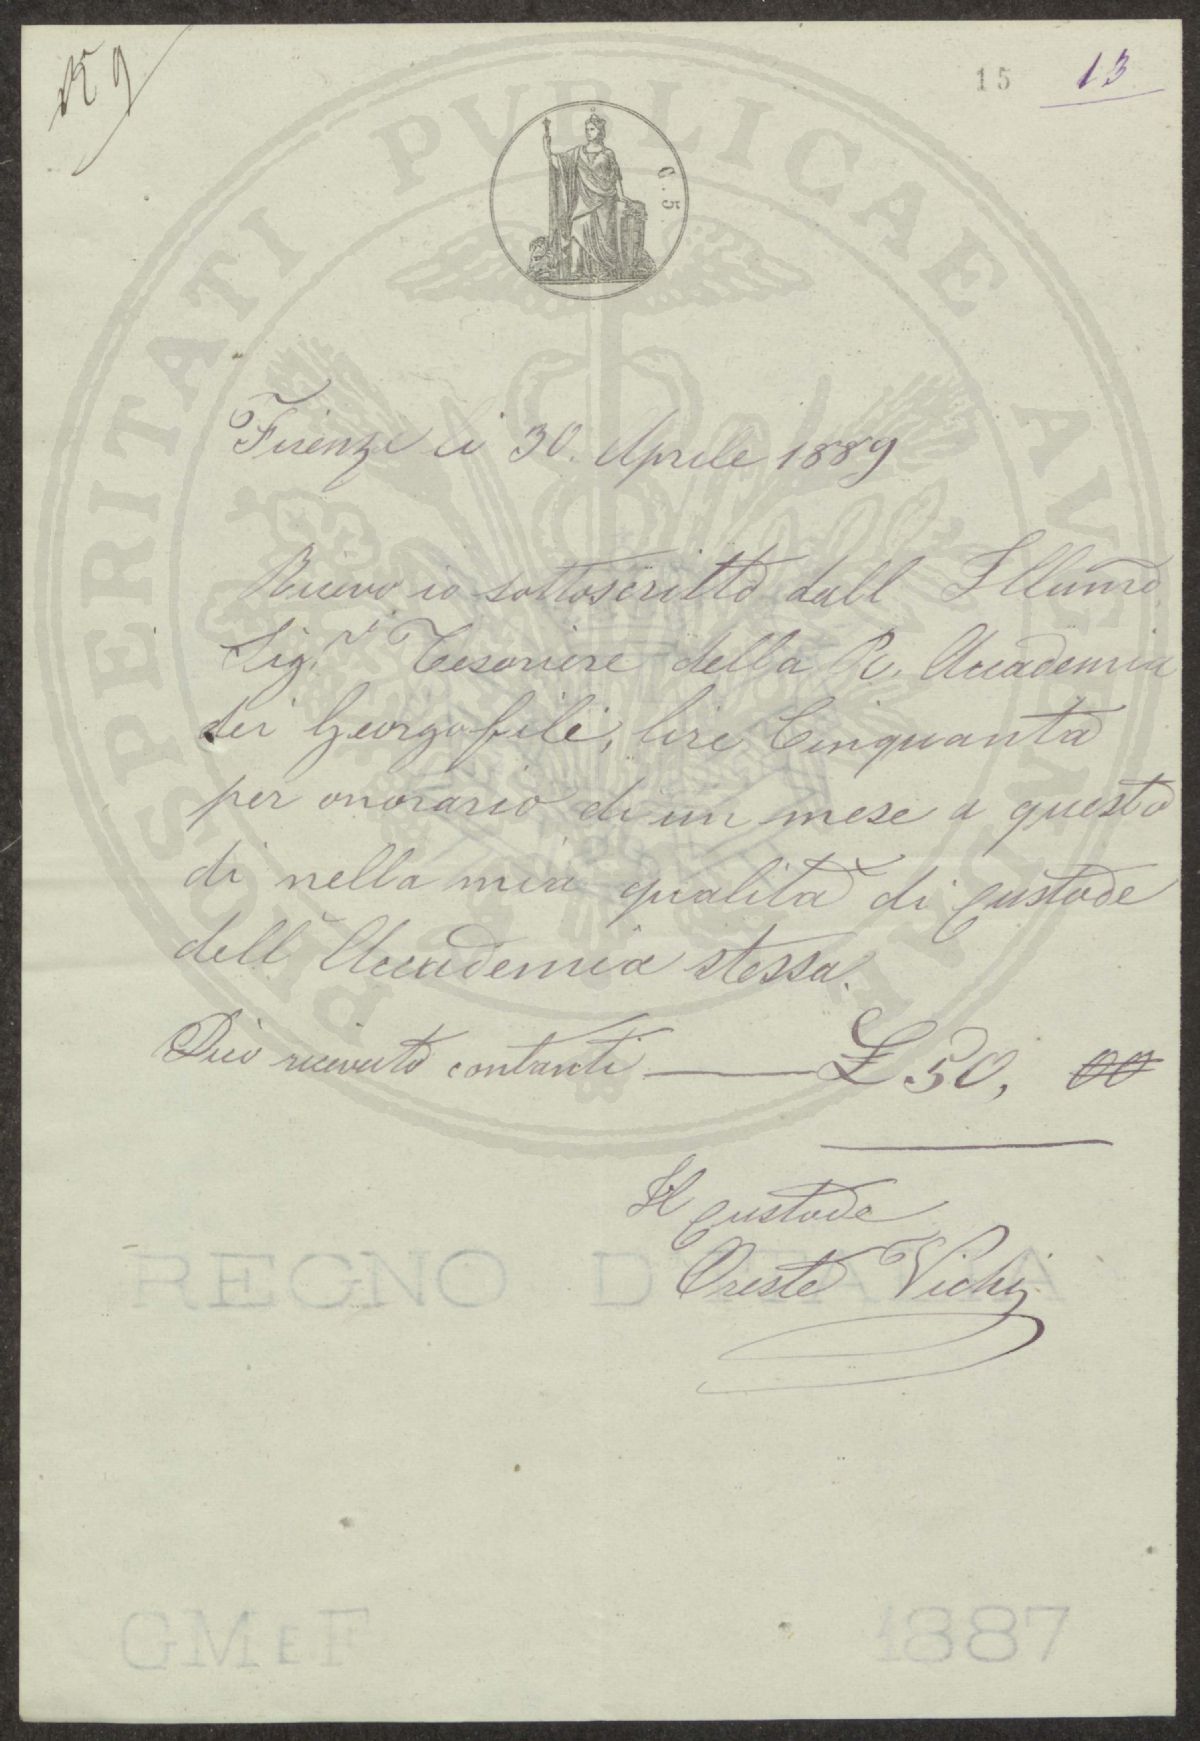 15 13
G. 5
PROSPERITATI PUBLICAE AUGENDAE
Firenze li 30. Aprile 1889
Ricevo io sottoscritto dall Illumo
Sigr. Tesoriere della R. Accademia
dei Georgofili, lire Cinquanta
per onorario di un mese a questo
di nella mia qualità di Custode
dell' Accademia stessa.
Dico ricevuto contanti £ 50, 00
Il Custode
Oreste Vichi
REGNO D'ITALIA
GM E F 1887